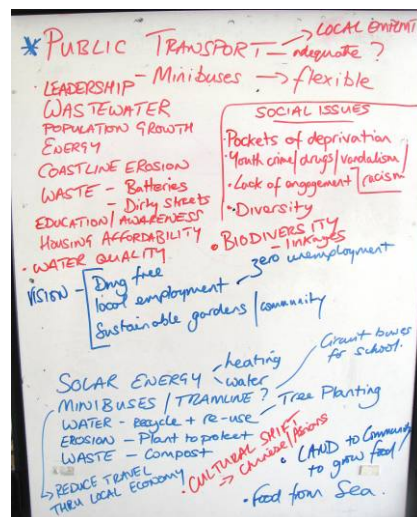 * PUBLIC TRANSPORT → LOCAL EMPMT
— adequate ?
• LEADERSHIP — Minibuses → flexible
WASTEWATER
POPULATION GROWTH
ENERGY
COASTLINE EROSION
WASTE — Batteries
— Dirty streets
EDUCATION / AWARENESS
HOUSING AFFORDABILITY
• WATER QUALITY
SOCIAL ISSUES
• Pockets of deprivation
• Youth crime / drugs / vandalism /
racism
• Lack of engagement
• Diversity
• BIODIVERSITY
— linkages
VISION — Drug free
local employment — zero unemployment
Sustainable gardens / community
SOLAR ENERGY — heating
water
MINIBUSES / TRAMLINE ? — Circuit buses
for school.
WATER — Recycle + re-use — Tree Planting
EROSION — Plant to protect
WASTE — Compost
→ REDUCE TRAVEL
THRU LOCAL ECONOMY
• CULTURAL SHIFT
→ Chinese / Asians
• LAND to Community
to grow food
• Food from Sea.